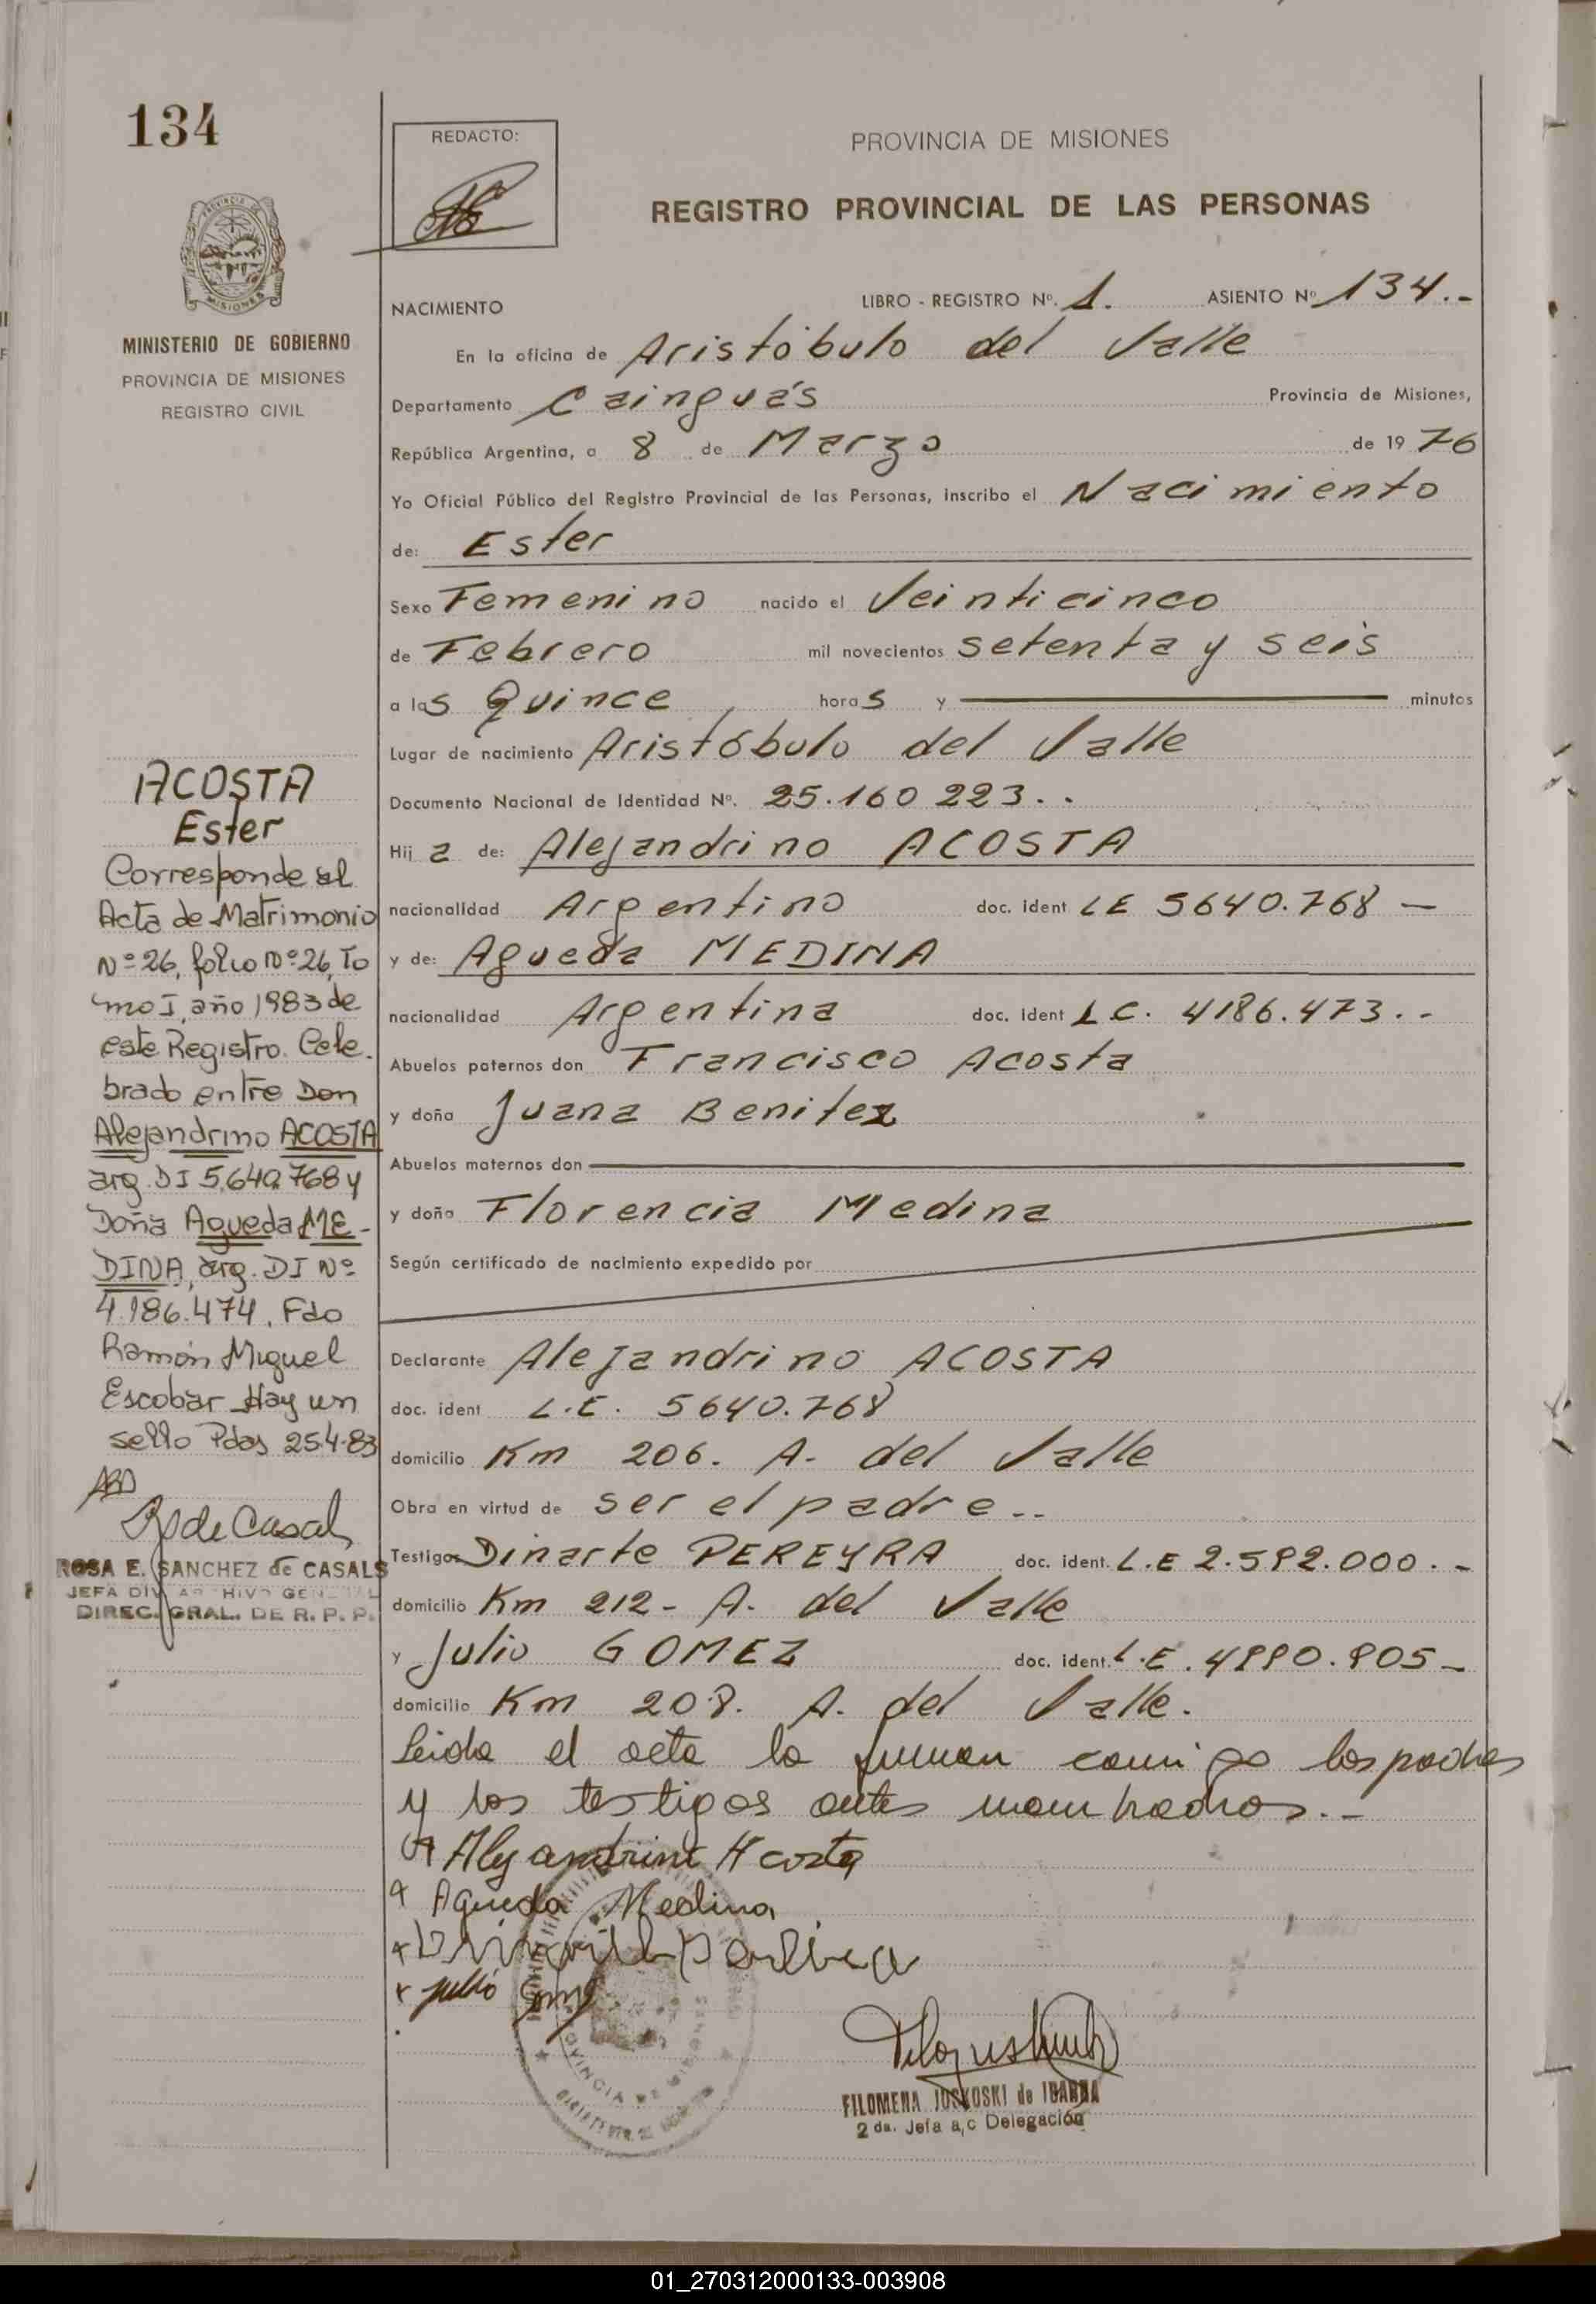 134
REDACTO:
PROVINCIA DE MISIONES
REGISTRO PROVINCIAL DE LAS PERSONAS
MISIONES
MINISTERIO DE GOBIERNO
PROVINCIA DE MISIONES
REGISTRO CIVIL
NACIMIENTO LIBRO - REGISTRO Nº. 1. ASIENTO Nº 134.-
En la oficina de Aristóbulo del Valle
Departamento Cainguás Provincia de Misiones,
República Argentina, a 8 de Marzo de 1976
Yo Oficial Público del Registro Provincial de las Personas, inscribo el Nacimiento
de: Ester
Sexo Femenino nacido el Veinticinco
de Febrero mil novecientos setenta y seis
a las Quince horas y minutos
Lugar de nacimiento Aristóbulo del Valle
Documento Nacional de Identidad Nº. 25.160 223..
Hij a de: Alejandrino ACOSTA
nacionalidad Argentino doc. ident LE 5640.768 —
y de: Agueda MEDINA
nacionalidad Argentina doc. ident L.C. 4186.473..
Abuelos paternos don Francisco Acosta
y doña Juana Benitez
Abuelos maternos don
y doña Florencia Medina
Según certificado de nacimiento expedido por
Declarante Alejandrino ACOSTA
doc. ident L.E. 5640.768
domicilio Km 206. A. del Valle
Obra en virtud de ser el padre..
Testigos Dinarte PEREYRA doc. ident. L.E 2.592.000.-
domicilio Km 212- A. del Valle
y Julio GOMEZ doc. ident. L.E. 4990.905-
domicilio Km 208. A. del Valle.
Leida el acta la firman conmigo los padres
y los testigos antes nombrados.-
Alejandrino Acosta
Agueda Medina
Julio
FILOMENA JUSKOSKI de IBARRA
2 da. Jefa a,c Delegación
ACOSTA
Ester
Corresponde al
Acta de Matrimonio
Nº 26, folio Nº 26, To
mo I, año 1983 de
este Registro. Cele.
brado entre Don
Alejandrino ACOSTA
arg. DI 5.640.768 y
Doña Agueda ME-
DINA, arg. DI Nº
4.186.474. Fdo
Ramón Miguel
Escobar Hay un
sello Pdas 25.4.83
R S de Casals
ROSA E. SANCHEZ de CASALS
JEFA DIV ARCHIVO GENERAL
DIREC. GRAL. DE R. P. P.
01_270312000133-003908